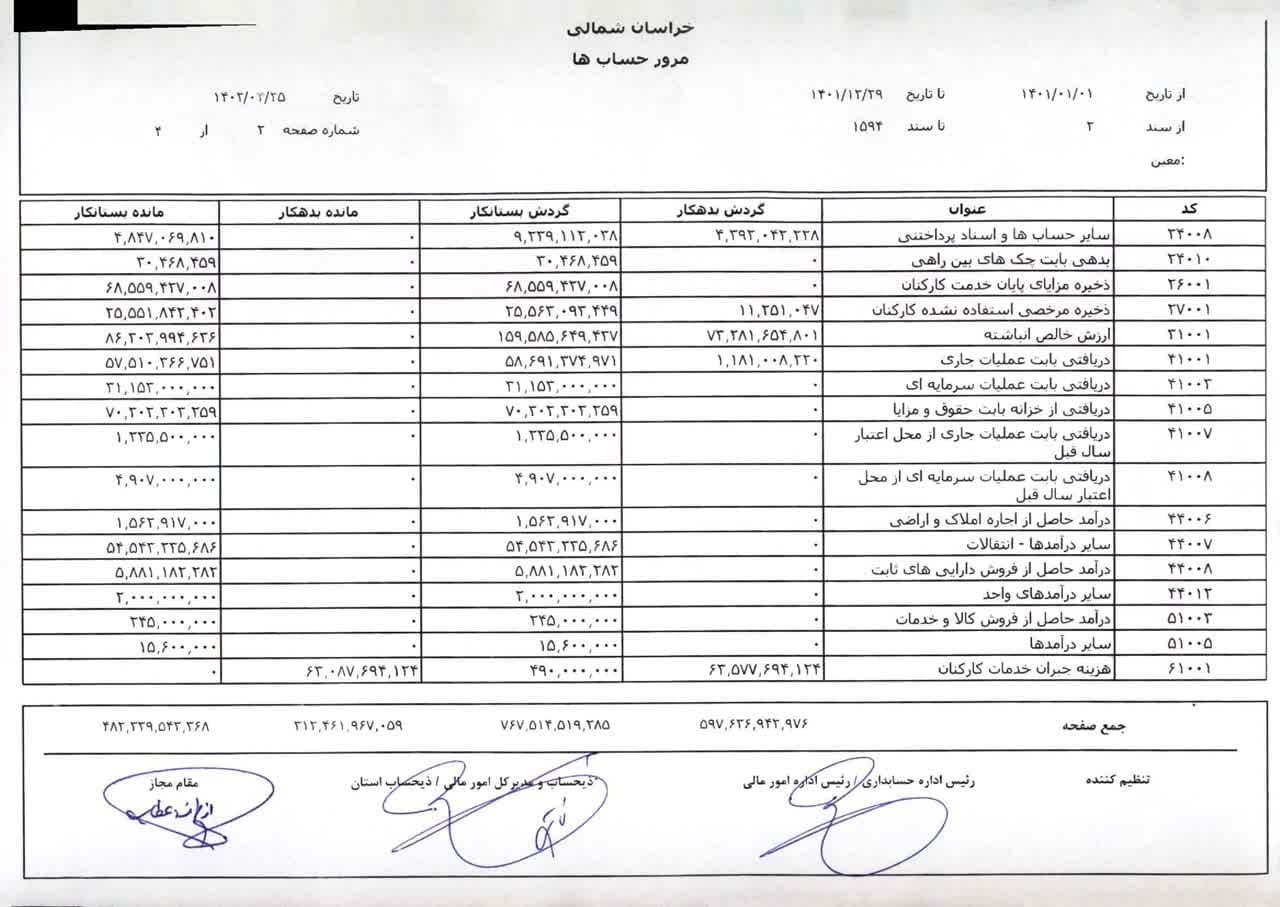 خراسان شمالی
مرور حساب ها
از تاریخ ۱۴۰۱/۰۱/۰۱ تا تاریخ ۱۴۰۱/۱۲/۲۹ تاریخ
از سند ۲ تا سند ۱۵۹۴ شماره صفحه ۲ از ۴
معین:
کد عنوان گردش بدهکار گردش بستانکار مانده بدهکار مانده بستانکار
۲۴۰۰۸ سایر حساب ها و اسناد پرداختنی ۴,۳۹۲,۰۴۲,۲۲۸ ۹,۲۳۹,۱۱۲,۰۳۸ ۰ ۴,۸۴۷,۰۶۹,۸۱۰
۲۴۰۱۰ بدهی بابت چک های بین راهی ۰ ۳۰,۴۶۸,۴۵۹ ۰ ۳۰,۴۶۸,۴۵۹
۲۶۰۰۱ ذخیره مزایای پایان خدمت کارکنان ۰ ۶۸,۵۵۹,۴۲۷,۰۰۸ ۰ ۶۸,۵۵۹,۴۲۷,۰۰۸
۲۷۰۰۱ ذخیره مرخصی استفاده نشده کارکنان ۱۱,۲۵۱,۰۴۷ ۲۵,۵۶۳,۰۹۳,۴۴۹ ۰ ۲۵,۵۵۱,۸۴۲,۴۰۲
۳۱۰۰۱ ارزش خالص انباشته ۷۳,۲۸۱,۶۵۴,۸۰۱ ۱۵۹,۵۸۵,۶۴۹,۴۳۷ ۰ ۸۶,۳۰۳,۹۹۴,۶۳۶
۴۱۰۰۱ دریافتی بابت عملیات جاری ۱,۱۸۱,۰۰۸,۲۲۰ ۵۸,۶۹۱,۳۷۴,۹۷۱ ۰ ۵۷,۵۱۰,۳۶۶,۷۵۱
۴۱۰۰۳ دریافتی بابت عملیات سرمایه ای ۰ ۳۱,۱۵۳,۰۰۰,۰۰۰ ۰ ۳۱,۱۵۳,۰۰۰,۰۰۰
۴۱۰۰۵ دریافتی از خزانه بابت حقوق و مزایا ۰ ۷۰,۳۰۲,۳۰۳,۲۵۹ ۰ ۷۰,۳۰۲,۳۰۳,۲۵۹
۴۱۰۰۷ دریافتی بابت عملیات جاری از محل اعتبار ۰ ۱,۲۳۵,۵۰۰,۰۰۰ ۰ ۱,۲۳۵,۵۰۰,۰۰۰
سال قبل
۴۱۰۰۸ دریافتی بابت عملیات سرمایه ای از محل ۰ ۴,۹۰۷,۰۰۰,۰۰۰ ۰ ۴,۹۰۷,۰۰۰,۰۰۰
اعتبار سال قبل
۴۴۰۰۶ درآمد حاصل از اجاره املاک و اراضی ۰ ۱,۵۶۳,۹۱۷,۰۰۰ ۰ ۱,۵۶۳,۹۱۷,۰۰۰
۴۴۰۰۷ سایر درآمدها - انتقالات ۰ ۵۴,۵۴۲,۳۳۵,۶۸۶ ۰ ۵۴,۵۴۲,۳۳۵,۶۸۶
۴۴۰۰۸ درآمد حاصل از فروش دارایی های ثابت ۰ ۵,۸۸۱,۱۸۲,۲۸۲ ۰ ۵,۸۸۱,۱۸۲,۲۸۲
۴۴۰۱۲ سایر درآمدهای واحد ۰ ۲,۰۰۰,۰۰۰,۰۰۰ ۰ ۲,۰۰۰,۰۰۰,۰۰۰
۵۱۰۰۳ درآمد حاصل از فروش کالا و خدمات ۰ ۲۴۵,۰۰۰,۰۰۰ ۰ ۲۴۵,۰۰۰,۰۰۰
۵۱۰۰۵ سایر درآمدها ۰ ۱۵,۶۰۰,۰۰۰ ۰ ۱۵,۶۰۰,۰۰۰
۶۱۰۰۱ هزینه جبران خدمات کارکنان ۶۳,۵۷۷,۶۹۴,۱۲۴ ۴۹۰,۰۰۰,۰۰۰ ۶۳,۰۸۷,۶۹۴,۱۲۴ ۰
جمع صفحه ۵۹۷,۶۳۶,۹۴۲,۹۷۶ ۷۶۷,۵۱۴,۵۱۹,۲۸۵ ۳۱۲,۴۶۱,۹۶۷,۰۵۹ ۴۸۲,۳۳۹,۵۴۳,۳۶۸
تنظیم کننده رئیس اداره حسابداری / رئیس اداره امور مالی ذیحساب و مدیرکل امور مالی / ذیحساب استان مقام مجاز